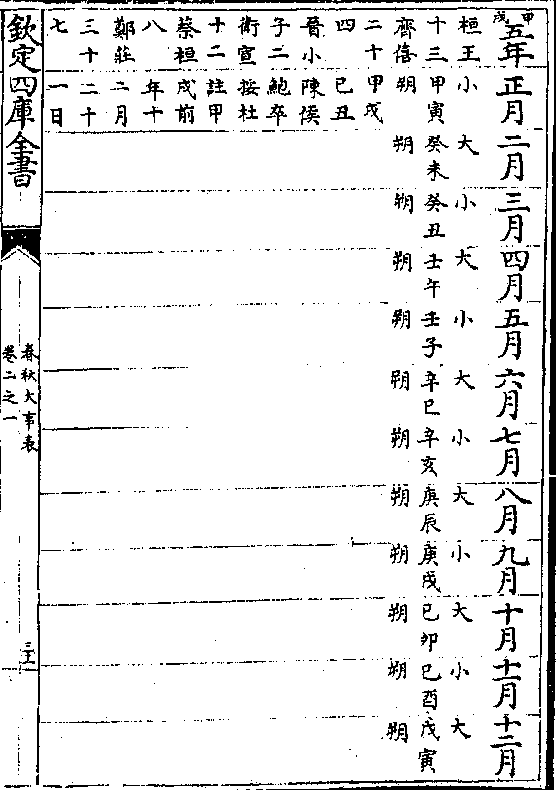 甲戌
五年
桓王
十三
齊僖
二十
四
晉小
子二
衛宣
十二
蔡桓
八
鄭莊
三十
七
正月
小
甲寅
朔
甲戌
己丑
陳侯
鮑卒
按杜
註甲
戌前
年十
二月
二十
一日
二月
大
癸未
朔
三月
小
癸丑
朔
四月
大
壬午
朔
五月
小
壬子
朔
六月
大
辛巳
朔
七月
小
辛亥
朔
八月
大
庚辰
朔
九月
小
庚戌
朔
十月
大
己卯
朔
十一月
小
己酉
朔
十二月
大
戊寅
朔
欽定四庫全書
春秋大事表
卷二之一